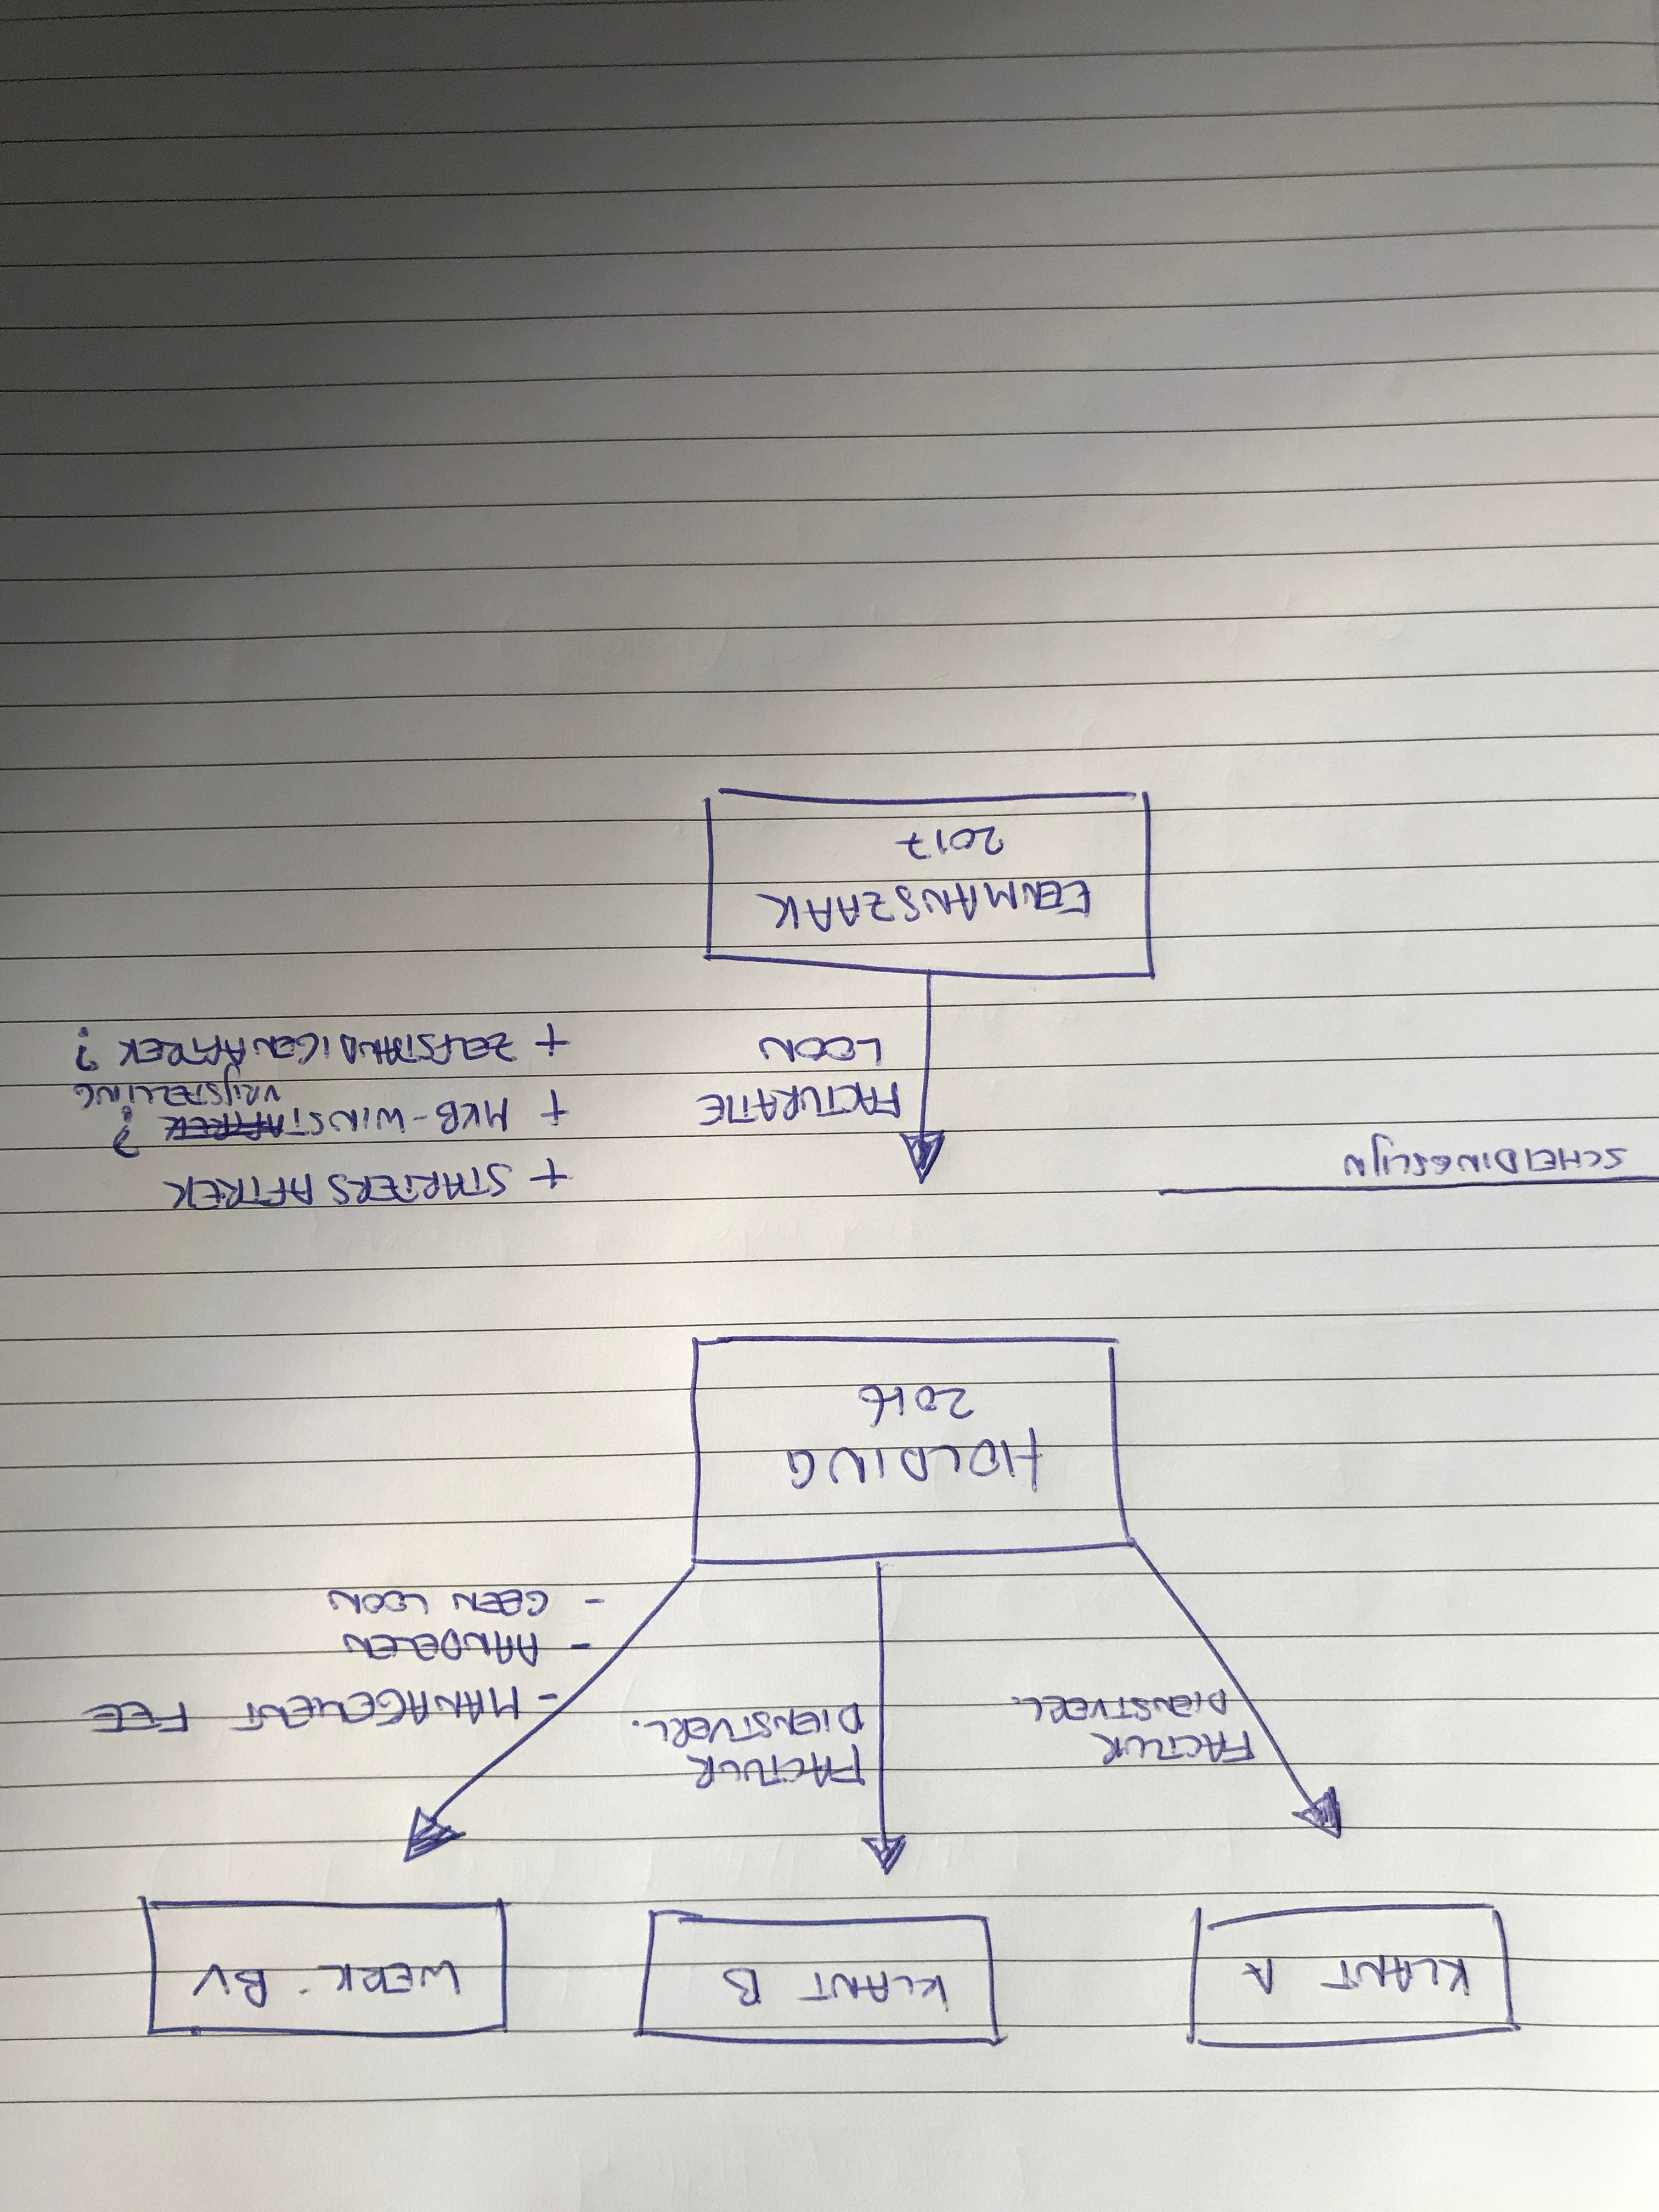 KLANT A
KLANT B
WERK-BV
FACTUUR
DIENSTVERL.
FACTUUR
DIENSTVERL.
- MANAGEMENT FEE
- AANDELEN
- GEEN LOON
HOLDING
2016
SCHEIDINGSLIJN
FACTURATIE
LOON
+ STARTERSAFTREK
+ MKB-WINSTAFTREK ?
VRIJSTELLING
+ ZELFSTANDIGENAFTREK ?
EENMANSZAAK
2017